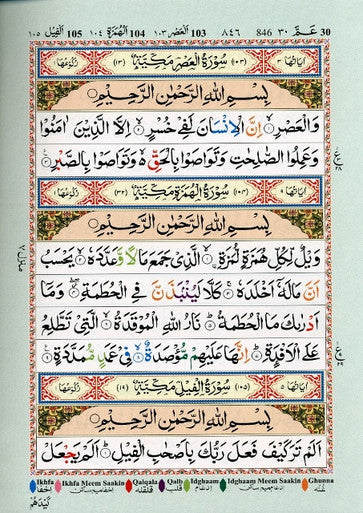 ١٠٥ الفيل 105 ١٠٤ الهمزة 104 ١٠٣ العصر 103 ٨٤٦ 846 عمّ ٣٠ 30
اياتها ٣ (١٠٣) سُوْرَةُ الْعَصْرِ مَكِّيَّةٌ (١٣) رکوعها ١
بِسْمِ اللهِ الرَّحْمٰنِ الرَّحِيْمِ
وَالْعَصْرِ ۙ اِنَّ الْاِنْسَانَ لَفِيْ خُسْرٍ ۙ اِلَّا الَّذِيْنَ اٰمَنُوْا
وَعَمِلُوا الصّٰلِحٰتِ وَتَوَاصَوْا بِالْحَقِّ ۙ وَتَوَاصَوْا بِالصَّبْرِ
اياتها ٩ (١٠٤) سُوْرَةُ الْهُمَزَةِ مَكِّيَّةٌ (٣٢) رکوعها ١
بِسْمِ اللهِ الرَّحْمٰنِ الرَّحِيْمِ
وَيْلٌ لِّكُلِّ هُمَزَةٍ لُّمَزَةٍ ۙ الَّذِيْ جَمَعَ مَالًا وَّعَدَّدَهٗ ۙ يَحْسَبُ
اَنَّ مَالَهٗٓ اَخْلَدَهٗ ۚ كَلَّا لَيُنْۢبَذَنَّ فِي الْحُطَمَةِ ۖ وَمَآ
اَدْرٰىكَ مَا الْحُطَمَةُ ۗ نَارُ اللهِ الْمُوْقَدَةُ ۙ الَّتِيْ تَطَّلِعُ
عَلَى الْاَفْـِٕدَةِ ۗ اِنَّهَا عَلَيْهِمْ مُّؤْصَدَةٌ ۙ فِيْ عَمَدٍ مُّمَدَّدَةٍ
اياتها ٥ (١٠٥) سُوْرَةُ الْفِيْلِ مَكِّيَّةٌ (١٩) رکوعها ١
بِسْمِ اللهِ الرَّحْمٰنِ الرَّحِيْمِ
اَلَمْ تَرَ كَيْفَ فَعَلَ رَبُّكَ بِاَصْحٰبِ الْفِيْلِ ۗ اَلَمْ يَجْعَلْ
Ikhfa Ikhfa Meem Saakin Qalqala Qalb Idghaam Idghaam Meem Saakin Ghunna
اخفا اخفا ميم ساكن قلقله قلب ادغام ادغام ميم ساكن غنه
كَيْدَهُمْ